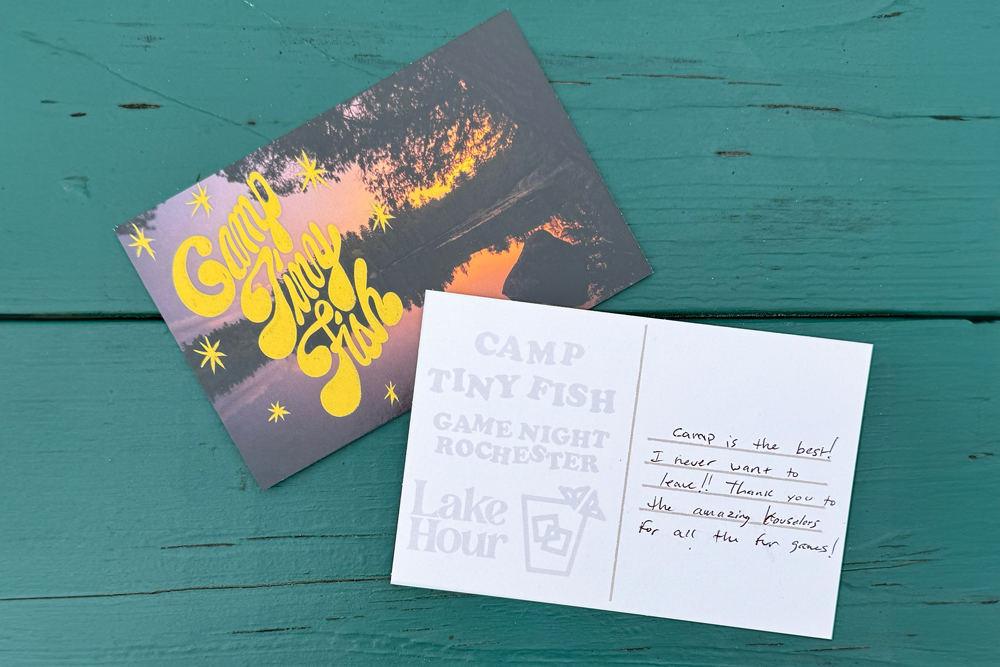 Camp
Tiny
Fish
CAMP
TINY FISH
GAME NIGHT
ROCHESTER
Lake
Hour
Camp is the best!
I never want to
leave!! Thank you to
the amazing Kouselors
for all the fun games!